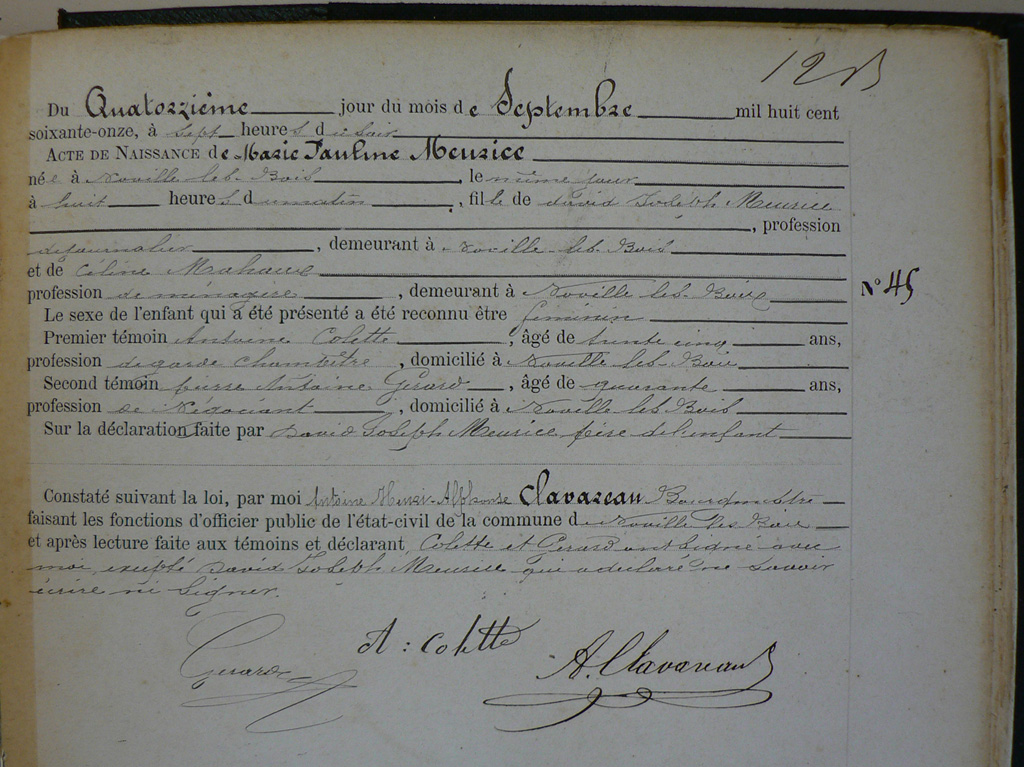 12
Du Quatorzième jour du mois de Septembre mil huit cent
soixante-onze, à sept heures du soir
ACTE DE NAISSANCE de Marie Pauline Meurice
née à Noville les Bois, le même jour
à huit heures du matin, fille de David Joseph Meurice
, profession
de journalier, demeurant à Noville les Bois
et de Céline Mahaux
profession de ménagère, demeurant à Noville les Bois
N° 45
Le sexe de l'enfant qui a été présenté a été reconnu être féminin
Premier témoin Antoine Colette, âgé de trente cinq ans,
profession de garde champêtre, domicilié à Noville les Bois
Second témoin Pierre Antoine Gérard, âgé de quarante ans,
profession de Négociant, domicilié à Noville les Bois
Sur la déclaration faite par David Joseph Meurice père de l'enfant
Constaté suivant la loi, par moi Antoine Henri Alphonse Clavareau Bourgmestre
faisant les fonctions d'officier public de l'état-civil de la commune de Noville les Bois
et après lecture faite aux témoins et déclarant, Colette et Gerard ont signé avec
moi, excepté David Joseph Meurice qui a déclaré ne savoir
écrire ni signer.
Gerard
A : Colette
A. Clavareau